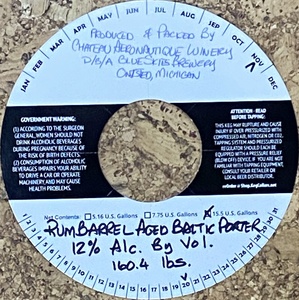 JAN
FEB
MAR
APR
MAY
JUN
JUL
AUG
SEP
OCT
NOV
DEC
PRODUCED & PACKED BY
CHATEAU AERONAUTIQUE WINERY
D/B/A BLUE SKIES BREWERY
ONSTED, MICHIGAN
GOVERNMENT WARNING:
(1) ACCORDING TO THE SURGEON
GENERAL, WOMEN SHOULD NOT
DRINK ALCOHOLIC BEVERAGES
DURING PREGNANCY BECAUSE OF
THE RISK OF BIRTH DEFECTS.
(2) CONSUMPTION OF ALCOHOLIC
BEVERAGES IMPAIRS YOUR ABILITY
TO DRIVE A CAR OR OPERATE
MACHINERY, AND MAY CAUSE
HEALTH PROBLEMS.
ATTENTION - READ
BEFORE TAPPING:
THIS KEG MAY RUPTURE AND CAUSE
INJURY IF OVER PRESSURIZED WITH
COMPRESSED AIR, NITROGEN OR CO2.
TAPPING SYSTEM AND PRESSURIZED
REGULATOR SHOULD EACH BE
EQUIPPED WITH A PRESSURE RELIEF
(BLOW OFF) DEVICE. IF YOU ARE NOT
FAMILIAR WITH TAPPING EQUIPMENT,
CONSULT YOUR RETAILER OR
LOCAL BEER DISTRIBUTOR.
reOrder @ Shop.KegCollars.net
Net Contents: 5.16 U.S. Gallons 7.75 U.S. Gallons 15.5 U.S. Gallons
RUM BARREL AGED BALTIC PORTER
12% Alc. By Vol.
160.4 lbs.
1 2 3 4 5 6 7 8 9 10 11 12 13 14 15 16 17 18 19 20 21 22 23 24 25 26 27 28 29 30 31